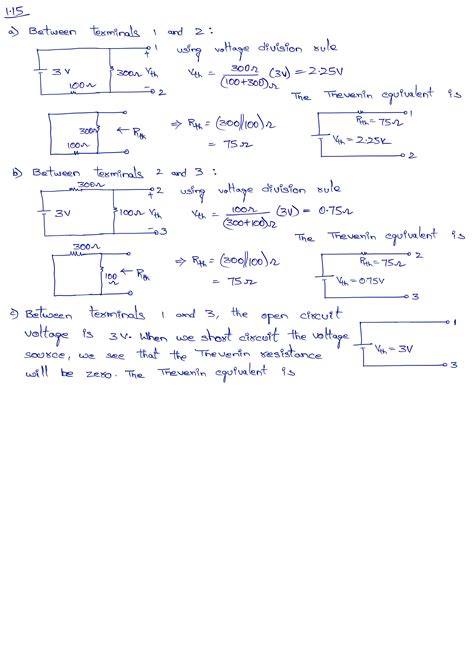 1.15
a) Between terminals 1 and 2 :
1
+
3V
300Ω Vth
100Ω
-
2
using voltage division rule
Vth = 300Ω/(100+300)Ω (3V) = 2.25V
The Thevenin equivalent is
300Ω
100Ω
← Rth
⇒ Rth = (300||100)Ω
= 75Ω
1
Rth = 75Ω
Vth = 2.25V
2
b) Between terminals 2 and 3 :
300Ω
2
+
3V
100Ω Vth
-
3
using voltage division rule
Vth = 100Ω/(300+100)Ω (3V) = 0.75Ω
The Thevenin equivalent is
300Ω
100Ω
← Rth
⇒ Rth = (300||100)Ω
= 75Ω
2
Rth = 75Ω
Vth = 0.75V
3
c) Between terminals 1 and 3, the open circuit
voltage is 3V. When we short circuit the voltage
source, we see that the Thevenin resistance
will be zero. The Thevenin equivalent is
1
Vth = 3V
3